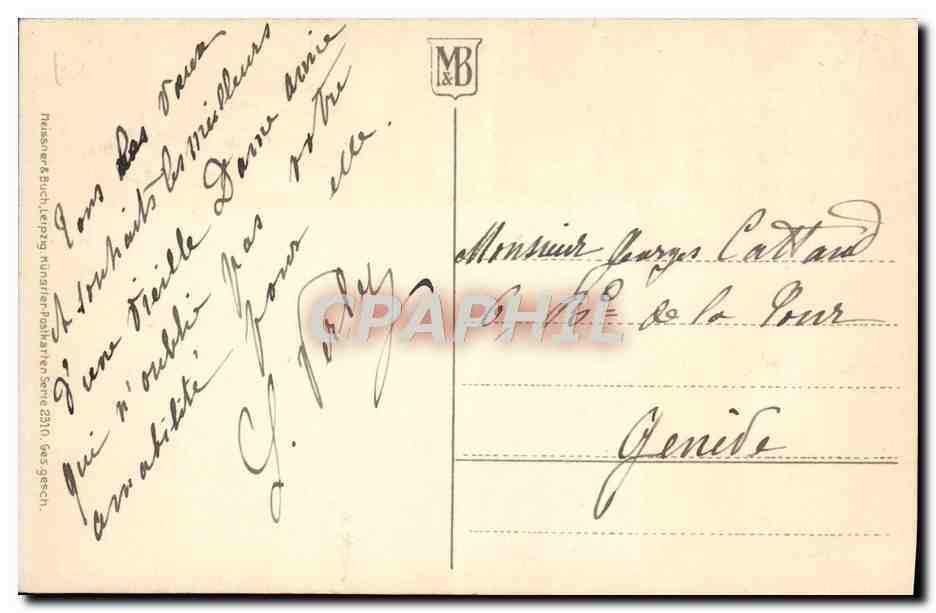 Tous les vœux
et souhaits les meilleurs
d'une vieille Dame amie
qui n'oublie pas votre
amabilité pour elle.
G.
M&B
Monsieur Georges Cattaud
6, Bd de la Tour
Genève
Meissner & Buch, Leipzig. Künstler-Postkarten Serie 2310. Ges. gesch.
CPAPHIL